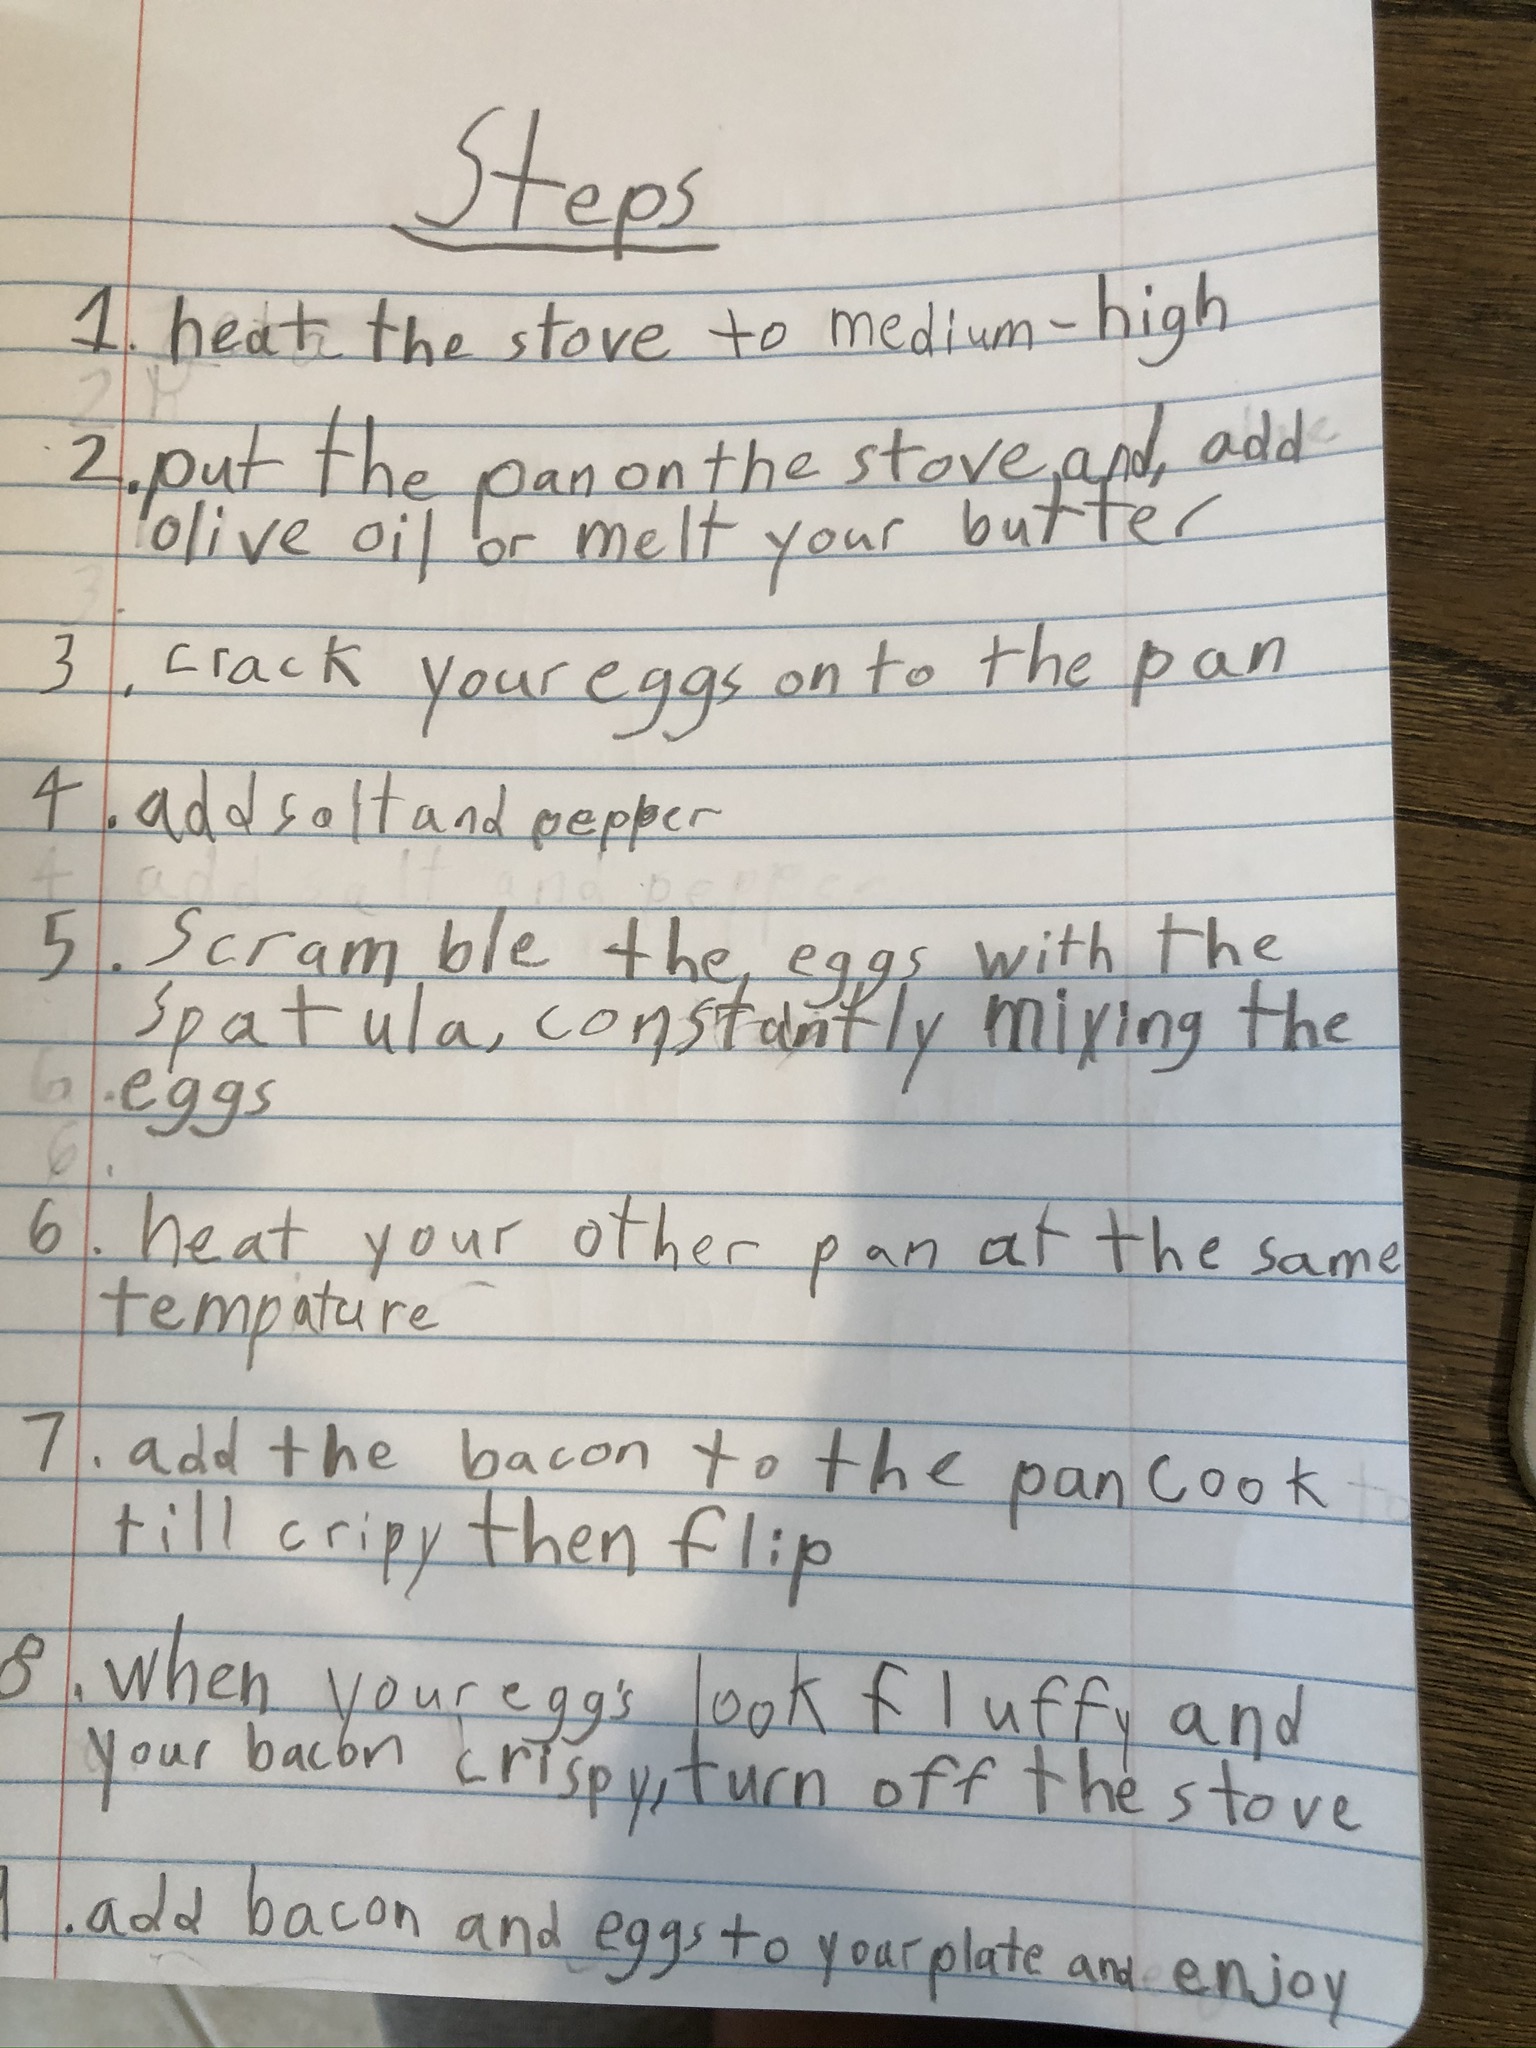 Steps
1. heat the stove to medium-high
2. put the pan on the stove, and, add
olive oil or melt your butter
3. crack your eggs onto the pan
4. add salt and pepper
5. Scramble the, eggs with the
spatula, constantly mixing the
eggs
6. heat your other pan at the same
tempature
7. add the bacon to the pan cook
till cripy then flip
8. when your eggs look fluffy and
your bacon crispy, turn off the stove
. add bacon and eggs to your plate and enjoy